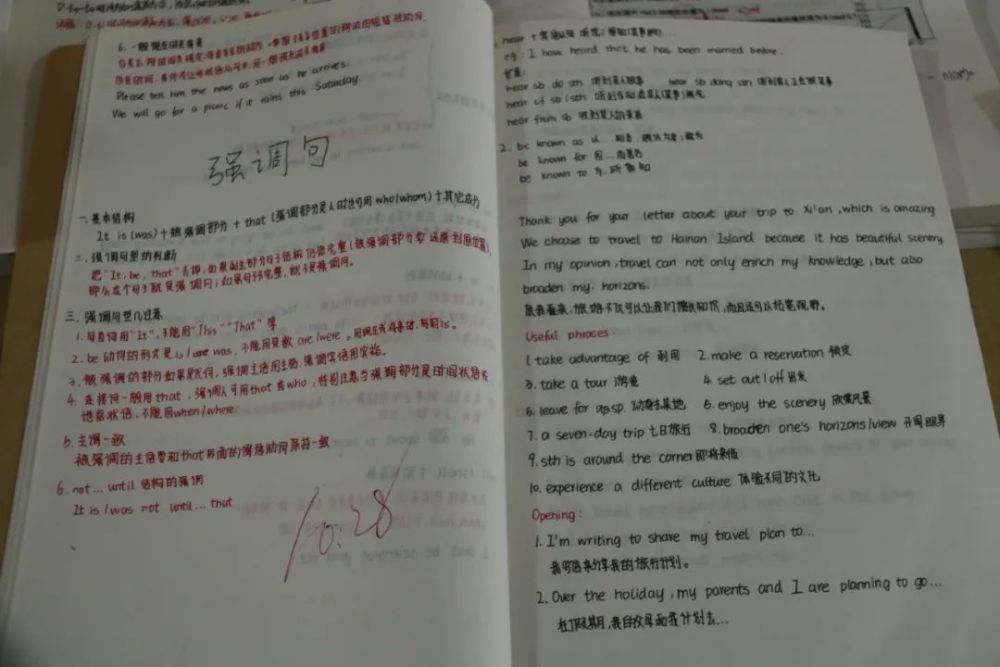 6. 一般现在时表将来
Please tell him the news as soon as he arrives.
We will go for a picnic if it rains this Saturday.
强调句
一. 基本结构
It is (was) + 被强调部分 + that (强调部分是人时也可用 who/whom) + 其它成分
二. 强调句型的判断
把 "It, be, that" 去掉, 如果剩余部分句子结构仍然完整 (被强调部分要还原到原位置),
那么这个句子就是强调句; 如果句子不完整, 就不是强调句。
三. 强调句型几注意
1. 句首词用 "It", 不能用 "This" "That" 等
2. be 动词的形式是 is / was, 不能用复数 are/were。
3. 被强调的部分如果是代词, 强调主语用主格, 强调宾语用宾格。
4. 连接词一般用 that, 强调人可用 that 或 who, 特别注意当强调部分是时间状语或
地点状语, 不能用 when/where
5. 主谓一致
被强调的主语要和 that 后面的谓语动词保持一致
6. not ... until 结构的强调
It is / was not until ... that
10.28
1. hear + 宾语从句 听说, 得知 (某事的) ...
eg: I have heard that he has been married before.
hear sb do sth 听到某人做某事 hear sb doing sth 听到某人正在做某事
hear of sb / sth
hear from sb 收到某人的来信
2. be known as 以...知名, 被认为是; 称为
be known for 因...而著名
be known to 为...所熟知
Thank you for your letter about your trip to Xi'an, which is amazing
We choose to travel to Hainan Island because it has beautiful scenery
In my opinion, travel can not only enrich my knowledge, but also
broaden my horizons.
在我看来, 旅游不仅可以让我们增长知识, 而且还可以拓宽视野。
Useful phrases:
1. take advantage of 利用 2. make a reservation 预定
3. take a tour 游览 4. set out / off 出发
5. leave for a sp. 动身去某地 6. enjoy the scenery 欣赏风景
7. a seven-day trip 七日旅行 8. broaden one's horizons/view 开阔眼界
9. sth is around the corner 即将来临
10. experience a different culture 体验不同的文化
Opening:
1. I'm writing to share my travel plan to...
我写信来分享我的旅行计划。
2. Over the holiday, my parents and I are planning to go...
在假期, 我的父母和我计划去...